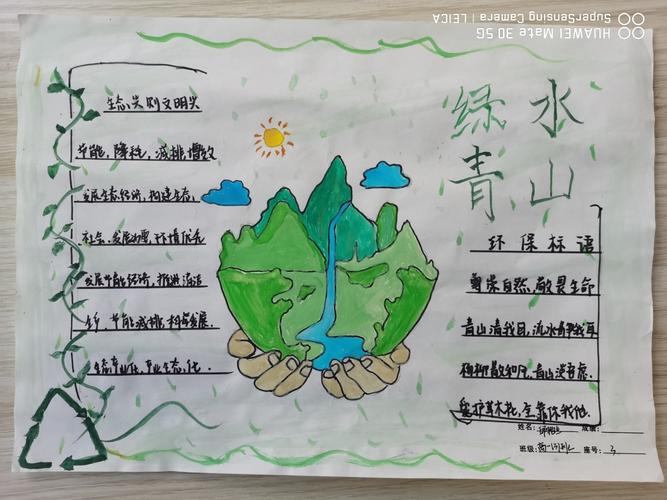 生态兴则文明兴
节能，降耗，减排，增效
发展生态经济，构建生态
社会，发展 环境优先
发展节能经济，推进清洁
生产，节能减排，构 发展.
生态产业化，产业生态化.
绿水
青山
环保标语
尊崇自然，敬畏生命
青山清我目，流水静我耳
青山
爱护草木花，全靠你我他.
姓名： 成绩：
班级： 座号：3
HUAWEI Mate 30 5G
SuperSensing Camera | LEICA